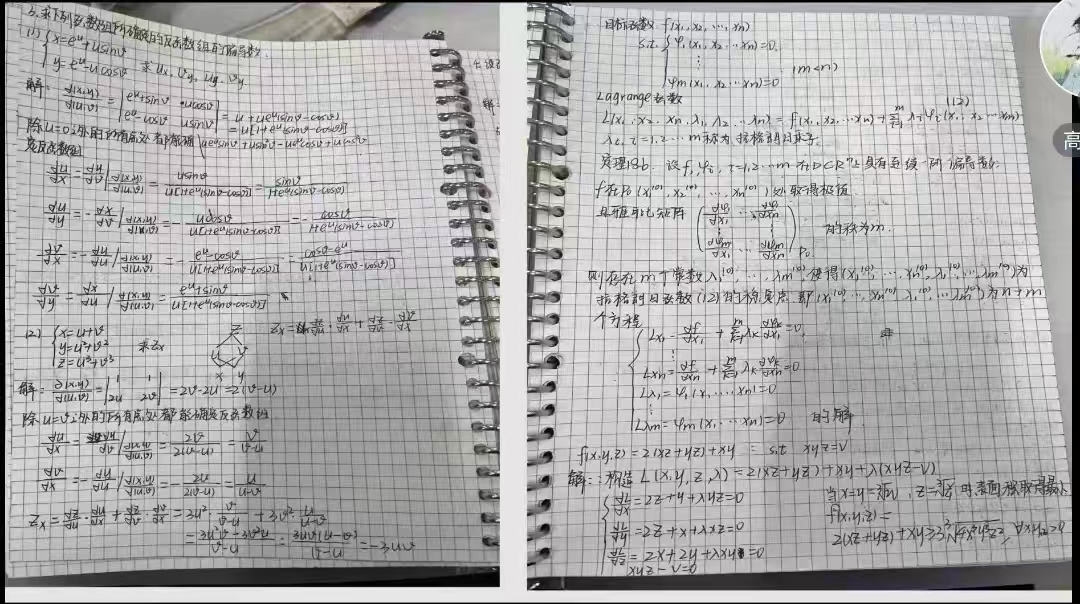 3.求下列函数组所确定的反函数组的偏导数.
(1) { x=e^u+usinv
y=e^u-ucosv 求 u_x, v_x, u_y, v_y.
解: ∂(x,y)/∂(u,v) = | e^u+sinv ucosv
e^u-cosv usinv | = u+ue^u(sinv-cosv)
= u[1+e^u(sinv-cosv)]
除u=0之外的所有点处都能确
定反函数组
∂u/∂x = ∂y/∂v / ∂(x,y)/∂(u,v) = usinv / u[1+e^u(sinv-cosv)] = sinv / 1+e^u(sinv-cosv)
∂u/∂y = -∂x/∂v / ∂(x,y)/∂(u,v) = - ucosv / u[1+e^u(sinv-cosv)] = - cosv / 1+e^u(sinv-cosv)
∂v/∂x = -∂y/∂u / ∂(x,y)/∂(u,v) = - e^u-cosv / u[1+e^u(sinv-cosv)] = cosv-e^u / u[1+e^u(sinv-cosv)]
∂v/∂y = ∂x/∂u / ∂(x,y)/∂(u,v) = e^u+sinv / u[1+e^u(sinv-cosv)]
(2) { x=u+v
y=u²+v² 求Z_x
z=u³+v³
Z
u v
x y
Z_x = ∂z/∂u · ∂u/∂x + ∂z/∂v · ∂v/∂x
解: ∂(x,y)/∂(u,v) = | 1 1
2u 2v | = 2v-2u = 2(v-u)
除u=v之外的所有点处都能确定反函数组
∂u/∂x = ∂y/∂v / ∂(x,y)/∂(u,v) = 2v / 2(v-u) = v / v-u
∂v/∂x = -∂y/∂u / ∂(x,y)/∂(u,v) = - 2u / 2(v-u) = u / u-v
Z_x = ∂z/∂u · ∂u/∂x + ∂z/∂v · ∂v/∂x = 3u² · v / v-u + 3v² · u / u-v
= 3u²v-3v²u / v-u = 3uv(u-v) / v-u = -3uv
目标函数 f(x₁, x₂, ⋯, xn)
s.t. { φ₁(x₁, x₂ ⋯ xn)=0,
⋮ (m<n)
φm(x₁, x₂ ⋯ xn)=0
Lagrange函数 (12)
L(x₁, x₂ ⋯ xn, λ₁, λ₂ ⋯ λm) = f(x₁, x₂ ⋯ xn) + Σ λi φi(x₁, x₂ ⋯ xn)
λi, i=1,2⋯m 称为拉格朗日乘子
定理18.6. 设f, φi, i=1,2⋯m 在D⊂Rⁿ上具有连续一阶偏导数.
f在P₀(x₁⁽⁰⁾, x₂⁽⁰⁾, ⋯, xn⁽⁰⁾)处取得极值
且雅可比矩阵 ( ∂φ₁/∂x₁ ⋯ ∂φ₁/∂xn
⋮ ⋮
∂φm/∂x₁ ⋯ ∂φm/∂xn ) P₀ 的秩为m.
则存在m个常数λ₁⁽⁰⁾, ⋯, λm⁽⁰⁾使得(x₁⁽⁰⁾, ⋯, xn⁽⁰⁾, λ₁⁽⁰⁾, ⋯, λm⁽⁰⁾)为
拉格朗日函数(12)的稳定点.即(x₁⁽⁰⁾, ⋯, xn⁽⁰⁾, λ₁⁽⁰⁾, ⋯, λm⁽⁰⁾)为n+m
个方程
{ Lx₁ = ∂f/∂x₁ + Σ λk ∂φk/∂x₁ = 0,
⋮
Lxn = ∂f/∂xn + Σ λk ∂φk/∂xn = 0
Lλ₁ = φ₁(x₁, ⋯ xn)=0
⋮
Lλm = φm(x₁, ⋯ xn)=0 的解
f(x,y,z)=2(xz+yz)+xy s.t xyz=V
解: 构造 L(x,y,z,λ)=2(xz+yz)+xy+λ(xyz-V)
{ ∂L/∂x = 2z+y+λyz=0
∂L/∂y = 2z+x+λxz=0
∂L/∂z = 2x+2y+λxy=0
xyz-V=0
当x=y=∛2V, 时,表面积取得最小
f(x,y,z)=
2(xz+yz)+xy≥3∛4x²y²z², ∀x,y,z>0
高